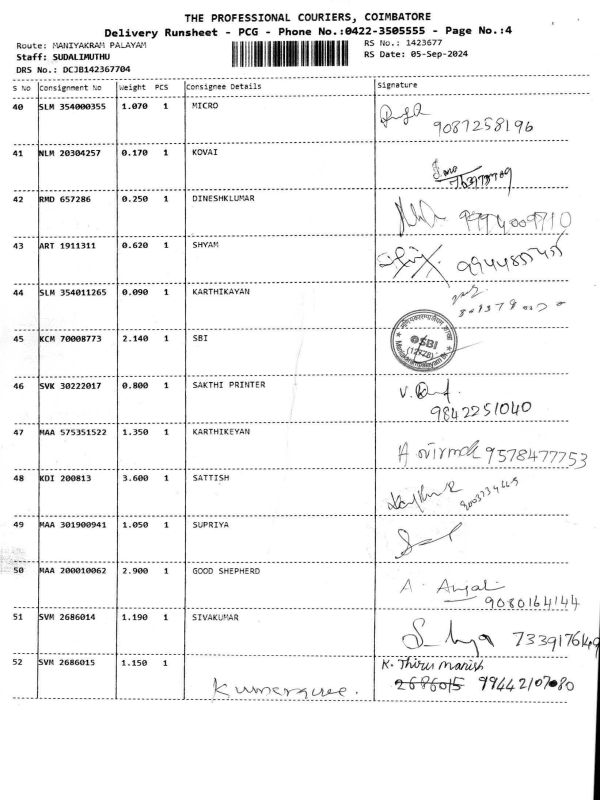 THE PROFESSIONAL COURIERS, COIMBATORE
Delivery Runsheet - PCG - Phone No.:0422-3505555 - Page No.:4
Route: MANIYAKRAM PALAYAM
RS No.: 1423677
Staff: SUDALIMUTHU
RS Date: 05-Sep-2024
DRS No.: DCJB142367704
S No Consignment No Weight PCS Consignee Details Signature
40 SLM 354000355 1.070 1 MICRO
9087258196
41 NLM 20304257 0.170 1 KOVAI
42 RMD 657286 0.250 1 DINESHKLUMAR
9994009710
43 ART 1911311 0.620 1 SHYAM
44 SLM 354011265 0.090 1 KARTHIKAYAN
45 KCM 70008773 2.140 1 SBI
SBI
46 SVK 30222017 0.800 1 SAKTHI PRINTER
9842251040
47 MAA 575351522 1.350 1 KARTHIKEYAN
9578477753
48 KDI 200813 3.600 1 SATTISH
49 MAA 301900941 1.050 1 SUPRIYA
50 MAA 200010062 2.900 1 GOOD SHEPHERD
A. Anjali
9080164144
51 SVM 2686014 1.190 1 SIVAKUMAR
7339176149
52 SVM 2686015 1.150 1
K. Thiru Manish
2686015